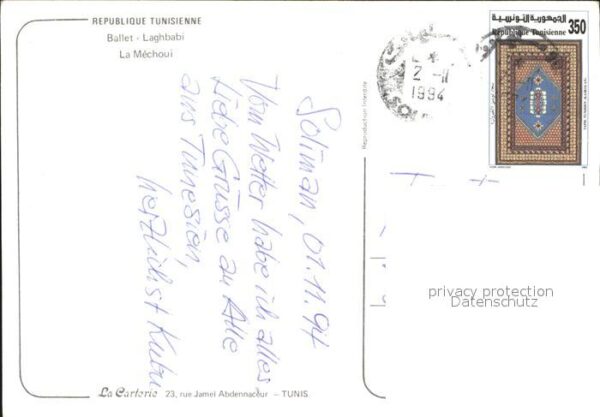 REPUBLIQUE TUNISIENNE
Ballet - Laghbabi
La Méchoui
Soliman, 01.11.94
Vom Wetter habe ich alles.
Liebe Grüsse an Alle
aus Tunesien,
herzlichst
Reproduction Interdite
2 -11
1994
الجمهورية التونسية
République Tunisienne
350
privacy protection
Datenschutz
La Carterie 23, rue Jamel Abdennaceur - TUNIS